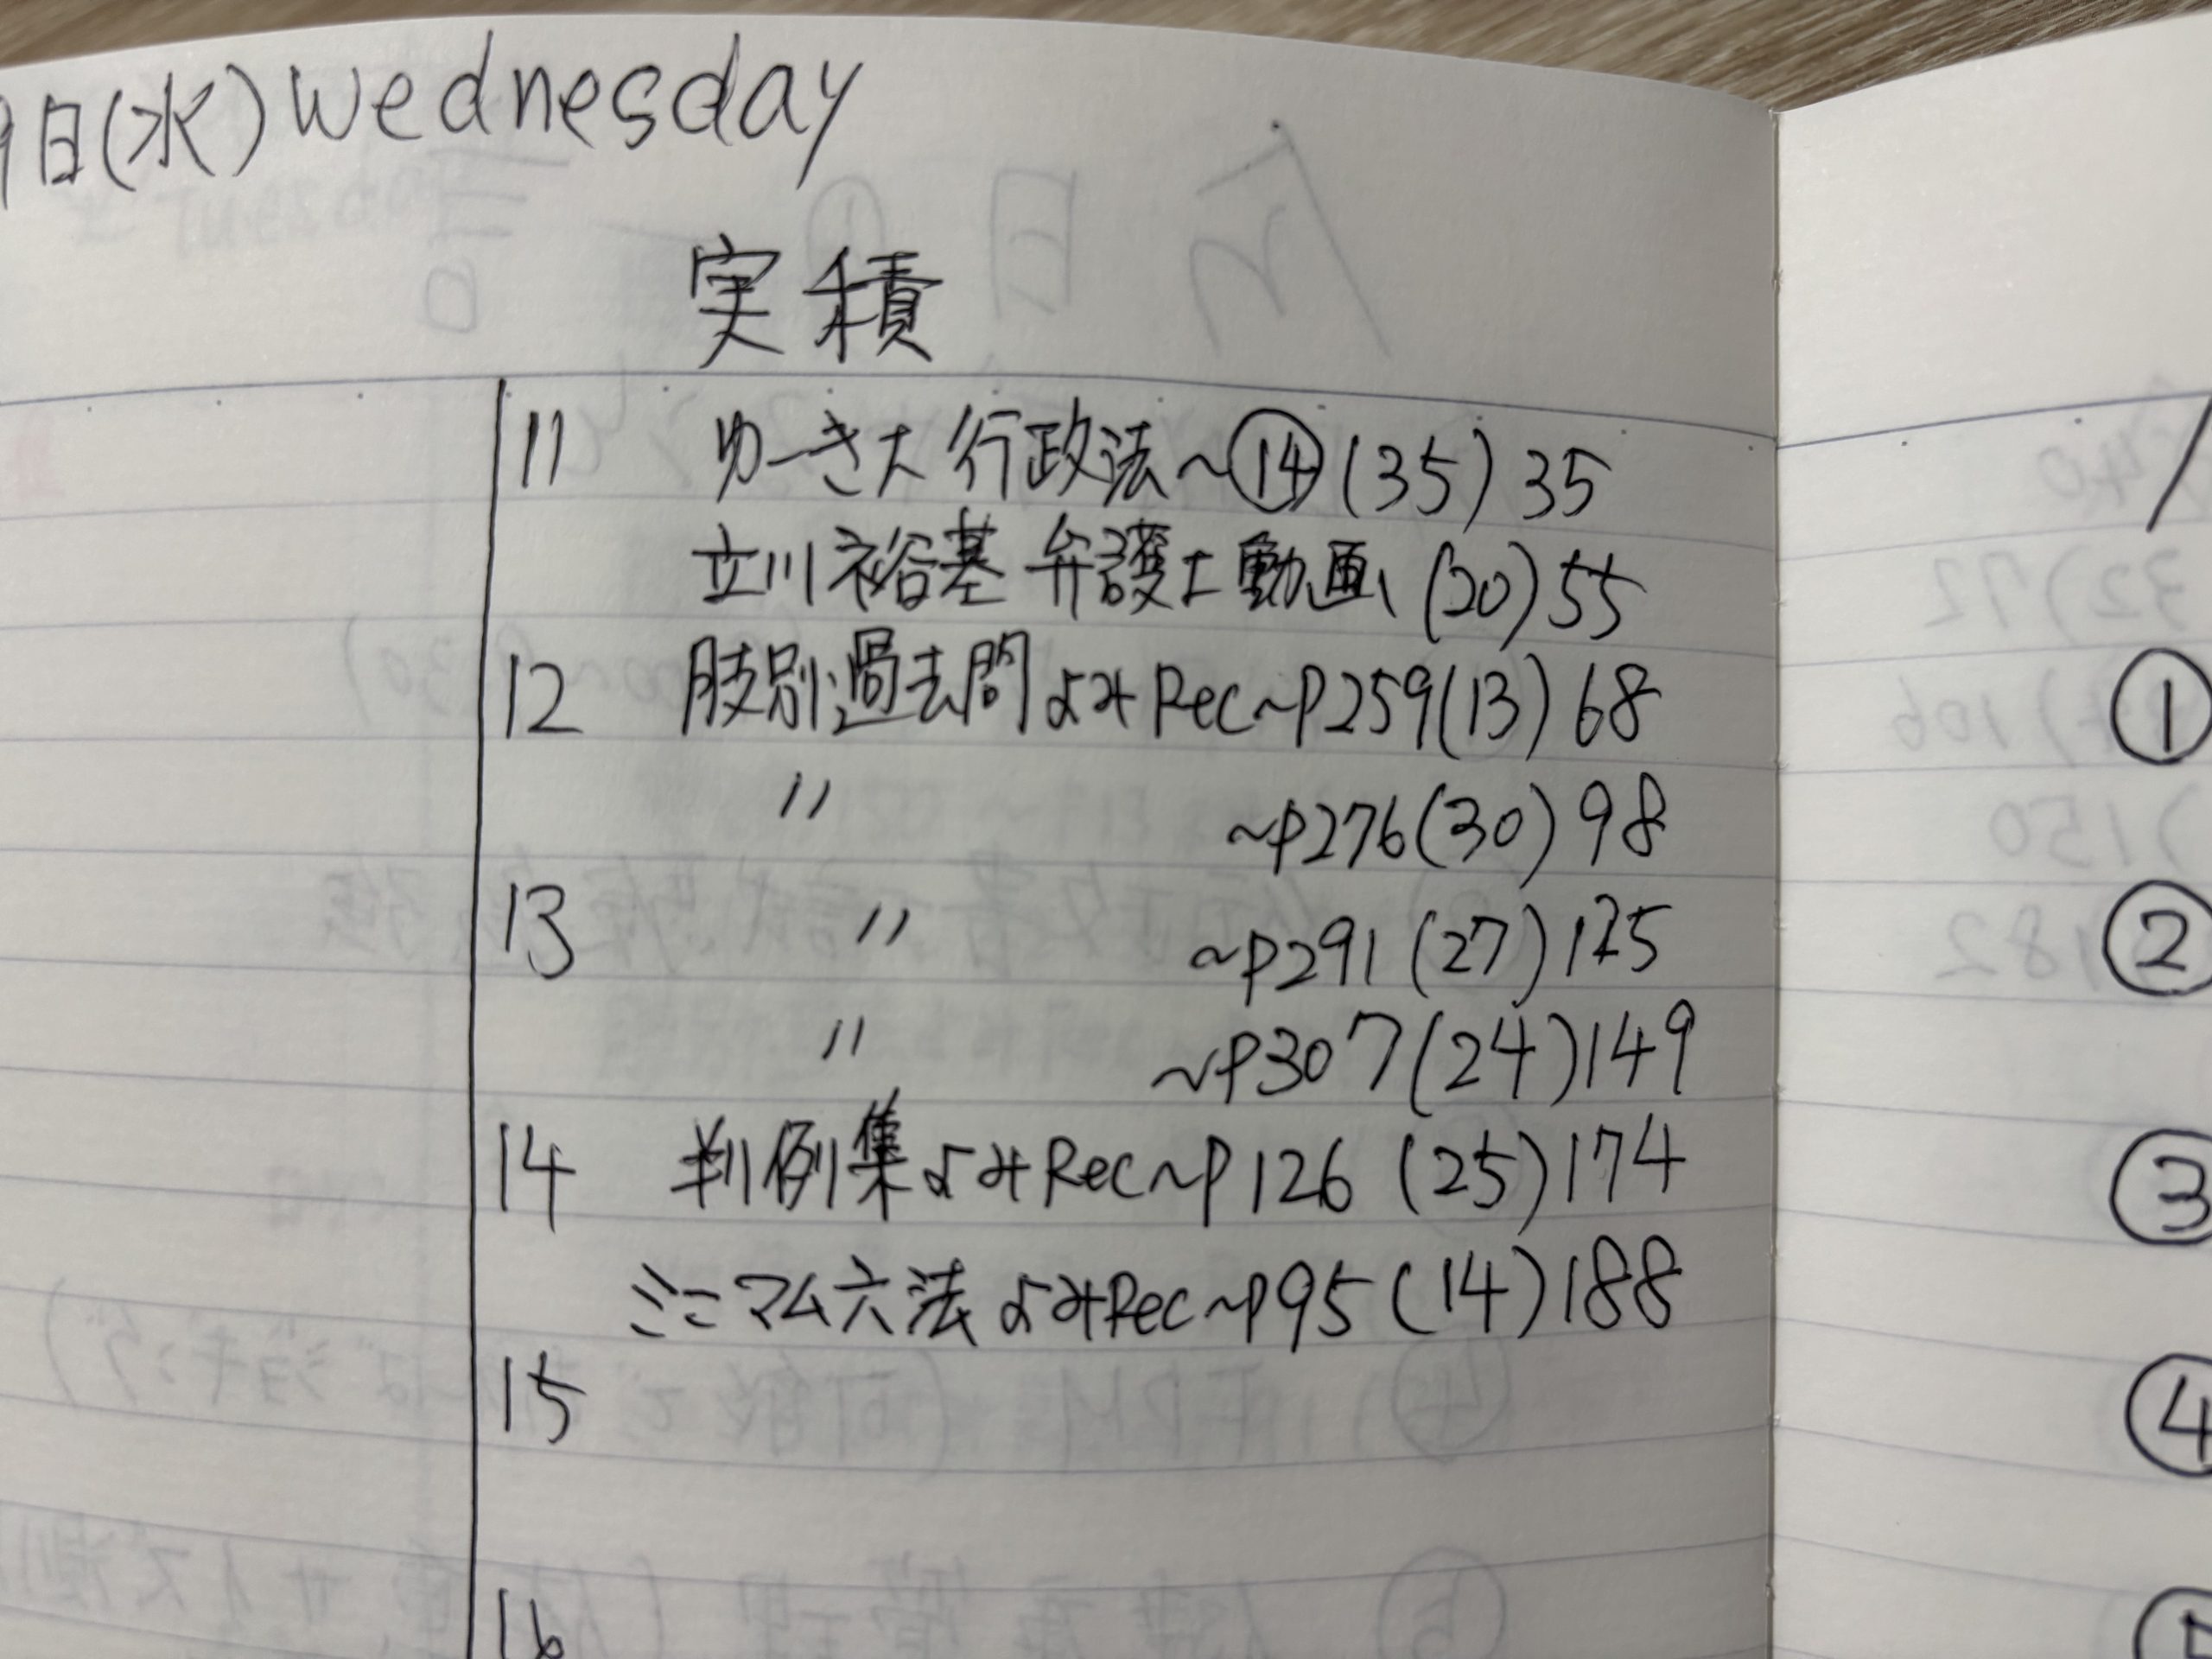 9日(水)wednesday
実積
11 ゆーき大 行政法〜⑭(35)35
立川裕基 弁護士動画 (20)55
12 肢別過去問よみRec〜P259(13)68
〃 〜P276(30)98
13 〃 〜P291(27)125
〃 〜P307(24)149
14 判例集よみRec〜P126(25)174
ミニマム六法よみRec〜P95(14)188
15
16
①
②
③
④